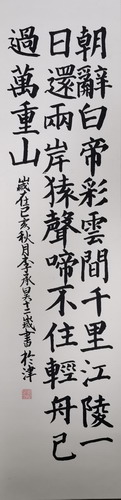 朝辭白帝彩雲間千里江陵一
日還兩岸猿聲啼不住輕舟已
過萬重山
歲在己亥秋月李承昊十二歲書於津